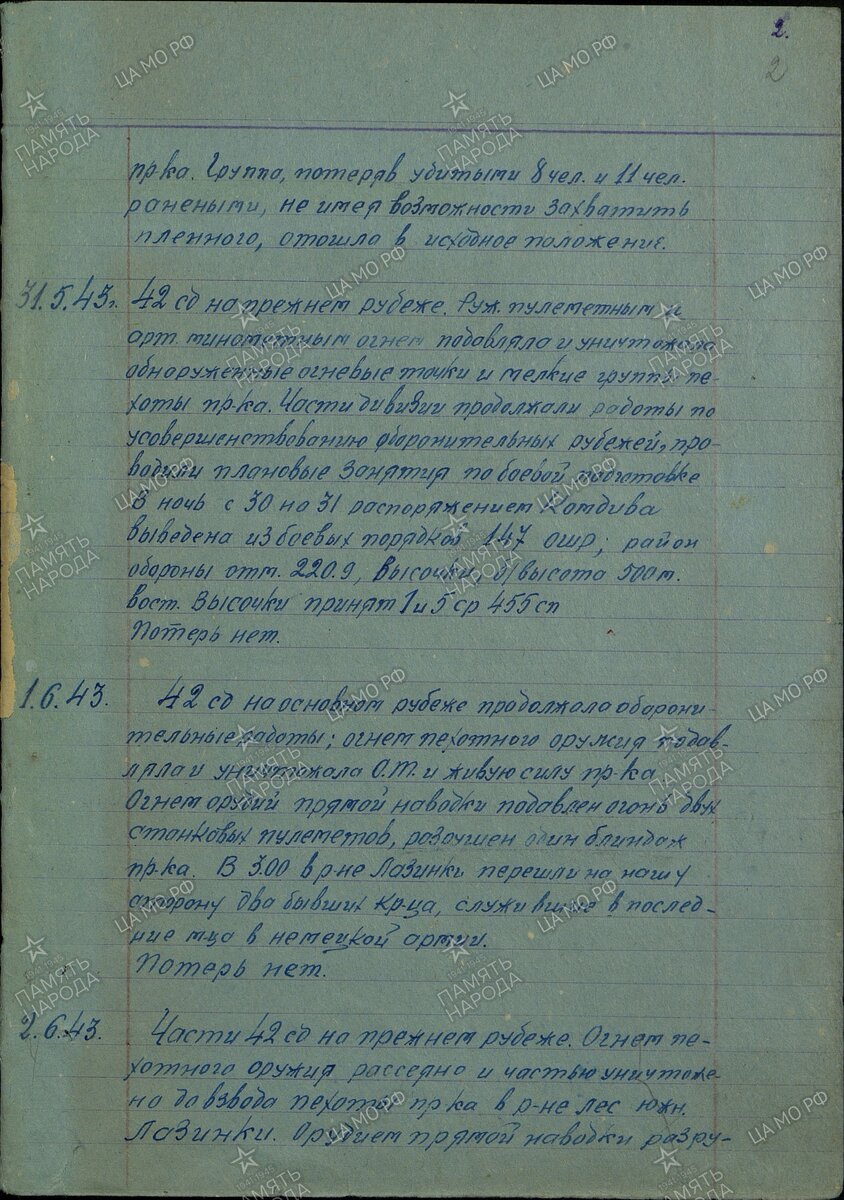 2.
2
пр-ка. Группа, потеряв убитыми 8 чел. и 11 чел.
ранеными, не имея возможности захватить
пленного, отошла в исходное положение.
31.5.43г. 42 сд на прежнем рубеже. Руж. пулеметным и
арт. минометным огнем подавляла и уничтожала
обнаруженные огневые точки и мелкие группы пе-
хоты пр-ка. Части дивизии продолжали работы по
усовершенствованию оборонительных рубежей, про-
водили плановые занятия по боевой подготовке
В ночь с 30 на 31 распоряжением Комдива
выведена из боевых порядков 147 ошр; район
обороны отм. 220.9, Высочки, б/высота 500 м.
вост. Высочки принят 1 и 5 ср 455 сп
Потерь нет.
1.6.43. 42 сд на основном рубеже продолжала оборони-
тельные работы; огнем пехотного оружия подав-
ляла и уничтожала О.Т. и живую силу пр-ка
Огнем орудий прямой наводки подавлен огонь двух
станковых пулеметов, разрушен один блиндаж
пр-ка. В 3.00 в р-не Лазинки перешли на нашу
сторону два бывших кр-ца, служившие в послед-
ние м-ца в немецкой армии.
Потерь нет.
2.6.43. Части 42 сд на прежнем рубеже. Огнем пе-
хотного оружия рассеяно и частью уничтоже-
но до взвода пехоты пр-ка в р-не лес южн.
Лазинки. Орудием прямой наводки разру-
ПАМЯТЬ НАРОДА
1941-1945
ЦА МО РФ